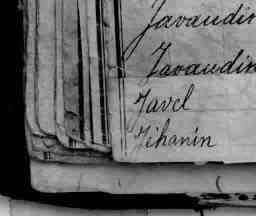 Javaudin
Javaudin
Javel
Jehanin